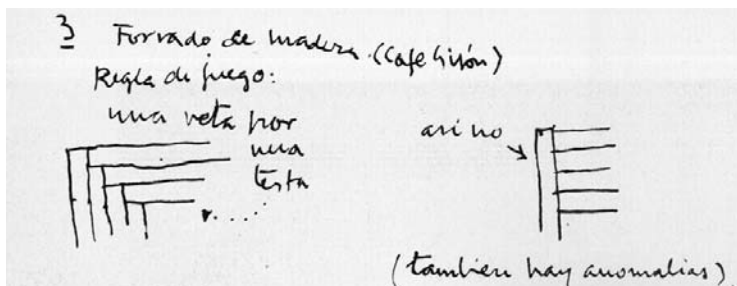 3 Forrado de madera. (Cafe Gijón)
Regla de juego:
una veta por
una
testa
asi no
(tambien hay anomalias)